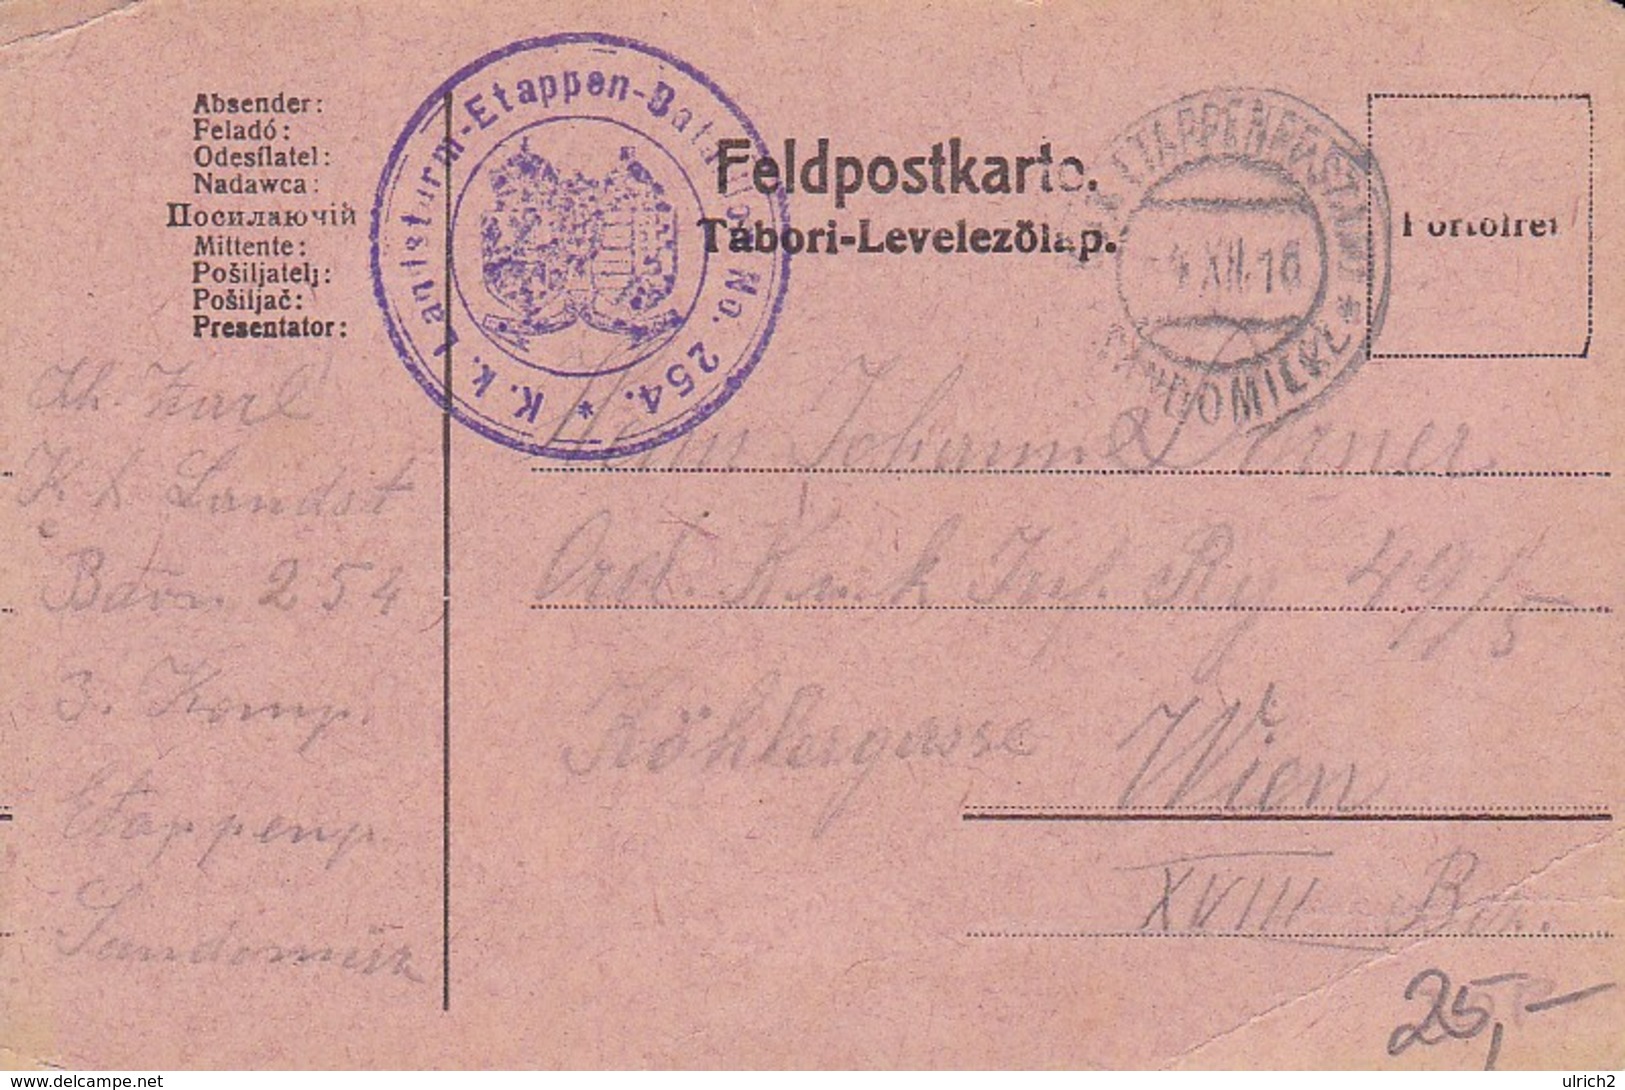 Absender:
Feladó:
Odesílatel:
Nadawca:
Посилаючій
Mittente:
Pošiljatelj:
Pošiljač:
Presentator:
K. k. Landsturm-Etappen-Bataillon No. 254. *
Feldpostkarte.
Tábori-Levelezőlap.
ETAPPENPOSTAMT *
4 XII. 16
SANDOMIERZ
Portofrei
Karl
K. k. Landst
Baon 254
3. Komp.
Etappenp.
Sandomierz
Herrn Johann
Ord. K. u. k Inf. Rg 49/5
Köhlergasse Wien
XVIII Bez.
25,-
delcampe.net
ulrich2